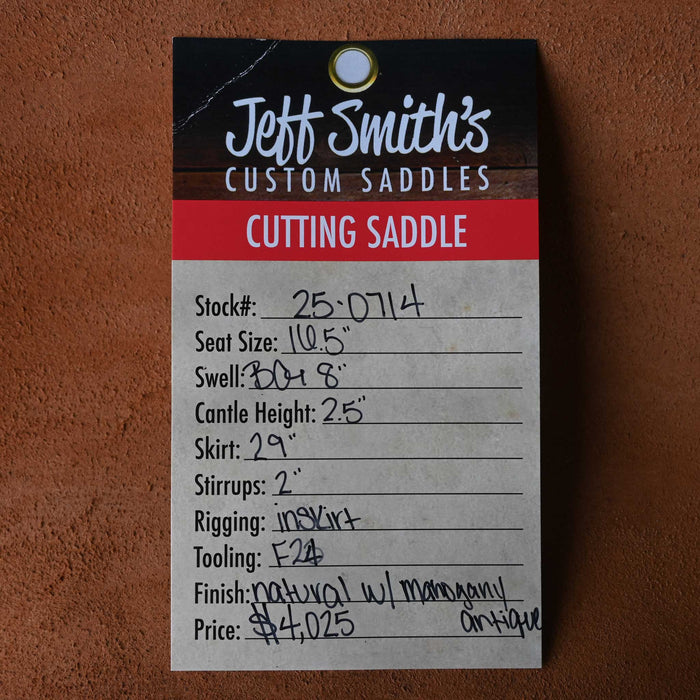 Jeff Smith's
CUSTOM SADDLES
CUTTING SADDLE
Stock#: 25-0714
Seat Size: 16.5"
Swell: 8"
Cantle Height: 2.5"
Skirt: 29"
Stirrups: 2"
Rigging: inskirt
Tooling:
Finish: natural w/ mahogany
antique
Price: $4,025